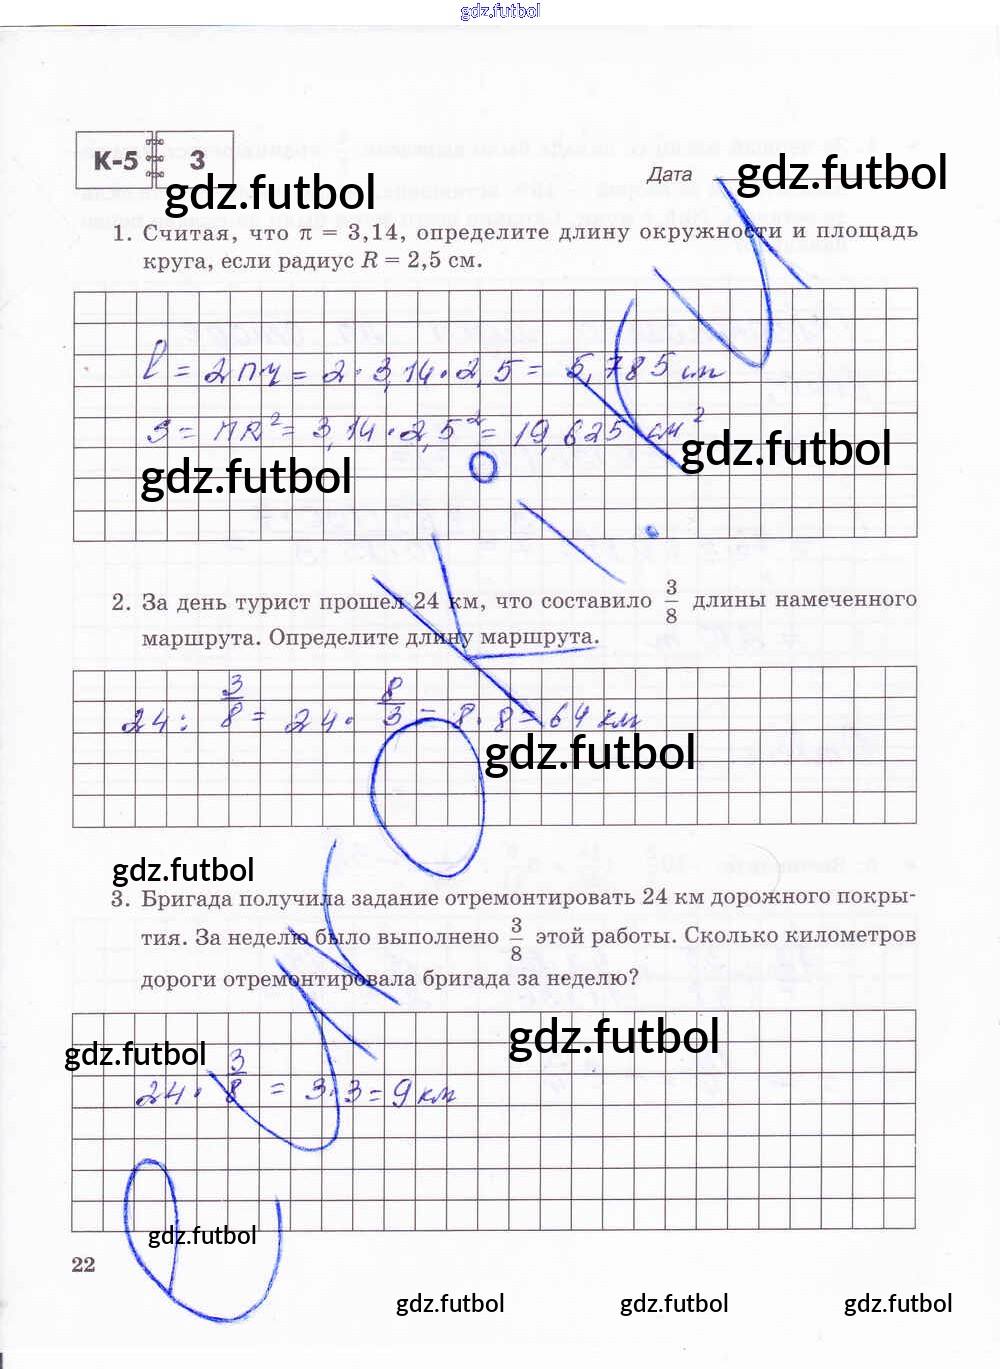 gdz.futbol
К-5 3
Дата
gdz.futbol gdz.futbol
1. Считая, что π = 3,14, определите длину окружности и площадь
круга, если радиус R = 2,5 см.
l = 2πr = 2 · 3,14 · 2,5 = 5,785 см
S = πR² = 3,14 · 2,5² = 19,625 см²
gdz.futbol gdz.futbol
2. За день турист прошел 24 км, что составило 3/8 длины намеченного
маршрута. Определите длину маршрута.
24 : 3/8 = 24 · 8/3 = 8 · 8 = 64 км
gdz.futbol
gdz.futbol
3. Бригада получила задание отремонтировать 24 км дорожного покры-
тия. За неделю было выполнено 3/8 этой работы. Сколько километров
дороги отремонтировала бригада за неделю?
gdz.futbol gdz.futbol
24 · 3/8 = 3 · 3 = 9 км
gdz.futbol
22
gdz.futbol gdz.futbol gdz.futbol